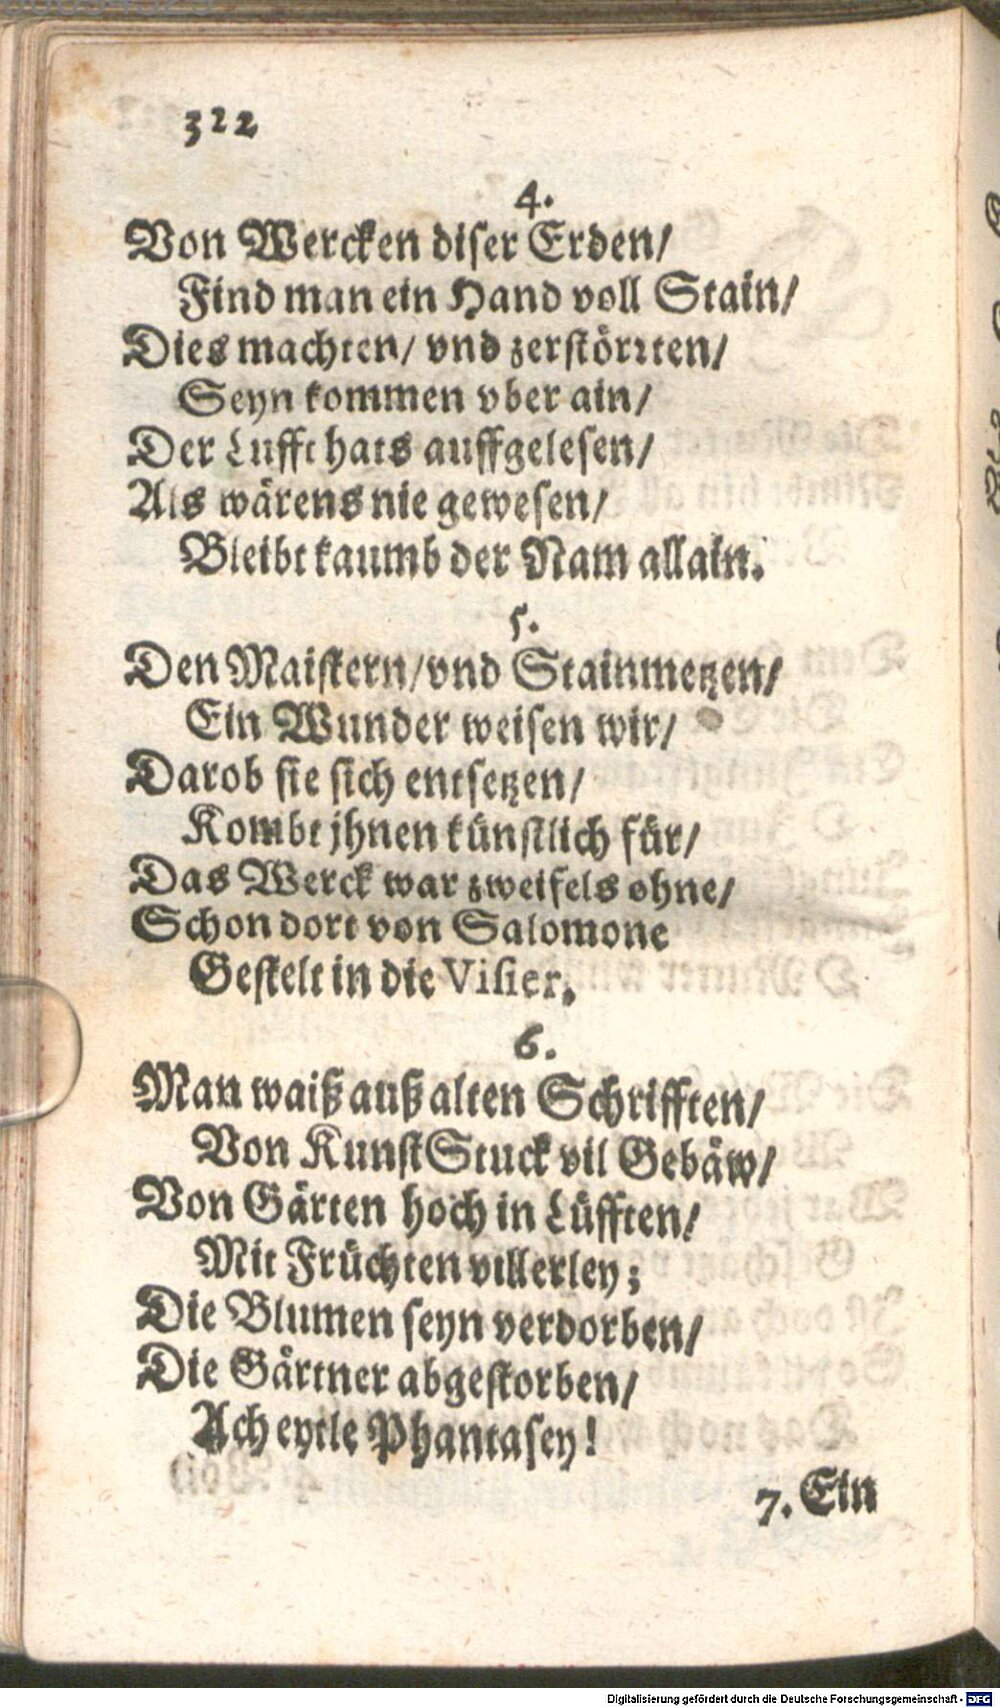 322
4.
Von Wercken diser Erden/
Find man ein Hand voll Stain/
Dies machten/ vnd zerstörtten/
Seyn kommen vber ain/
Der Lufft hats auffgelesen/
Als wärens nie gewesen/
Bleibt kaumb der Nam allain.
5.
Den Maistern/ vnd Stainmetzen/
Ein Wunder weisen wir/
Darob sie sich entsetzen/
Kombt jhnen künstlich für/
Das Werck war zweifels ohne/
Schon dort von Salomone
Gestelt in die Visier.
6.
Man waiß auß alten Schrifften/
Von KunstStuck vil Gebäw/
Von Gärten hoch in Lüfften/
Mit Früchten villerley;
Die Blumen seyn verdorben/
Die Gärtner abgestorben/
Ach eytle Phantasey!
7. Ein
Digitalisierung gefördert durch die Deutsche Forschungsgemeinschaft - DFG